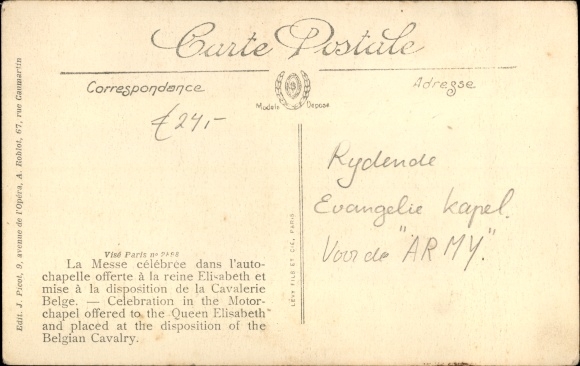 Carte Postale
Correspondance
Adresse
Modèle Déposé
€24,-
Rydende
Evangelie kapel.
Voor de "ARMY".
Visé Paris no
La Messe célébrée dans l'auto-
chapelle offerte à la reine Elisabeth et
mise à la disposition de la Cavalerie
Belge. — Celebration in the Motor-
chapel offered to the Queen Elisabeth
and placed at the disposition of the
Belgian Cavalry.
LÉVY FILS ET CIE, PARIS
Edit. J. Picot, 9, avenue de l'Opéra, A. Roblot, 67, rue Caumartin